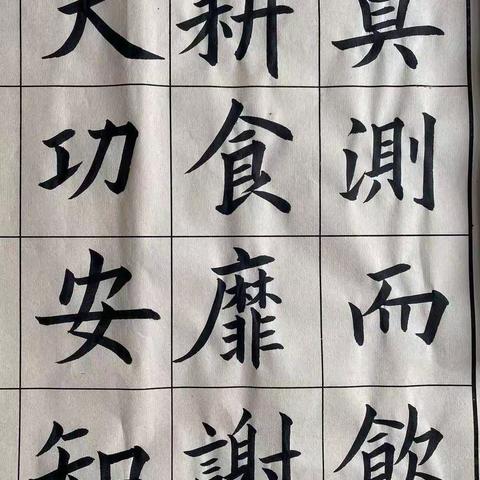 真測而飲
耕食靡謝
天功安知